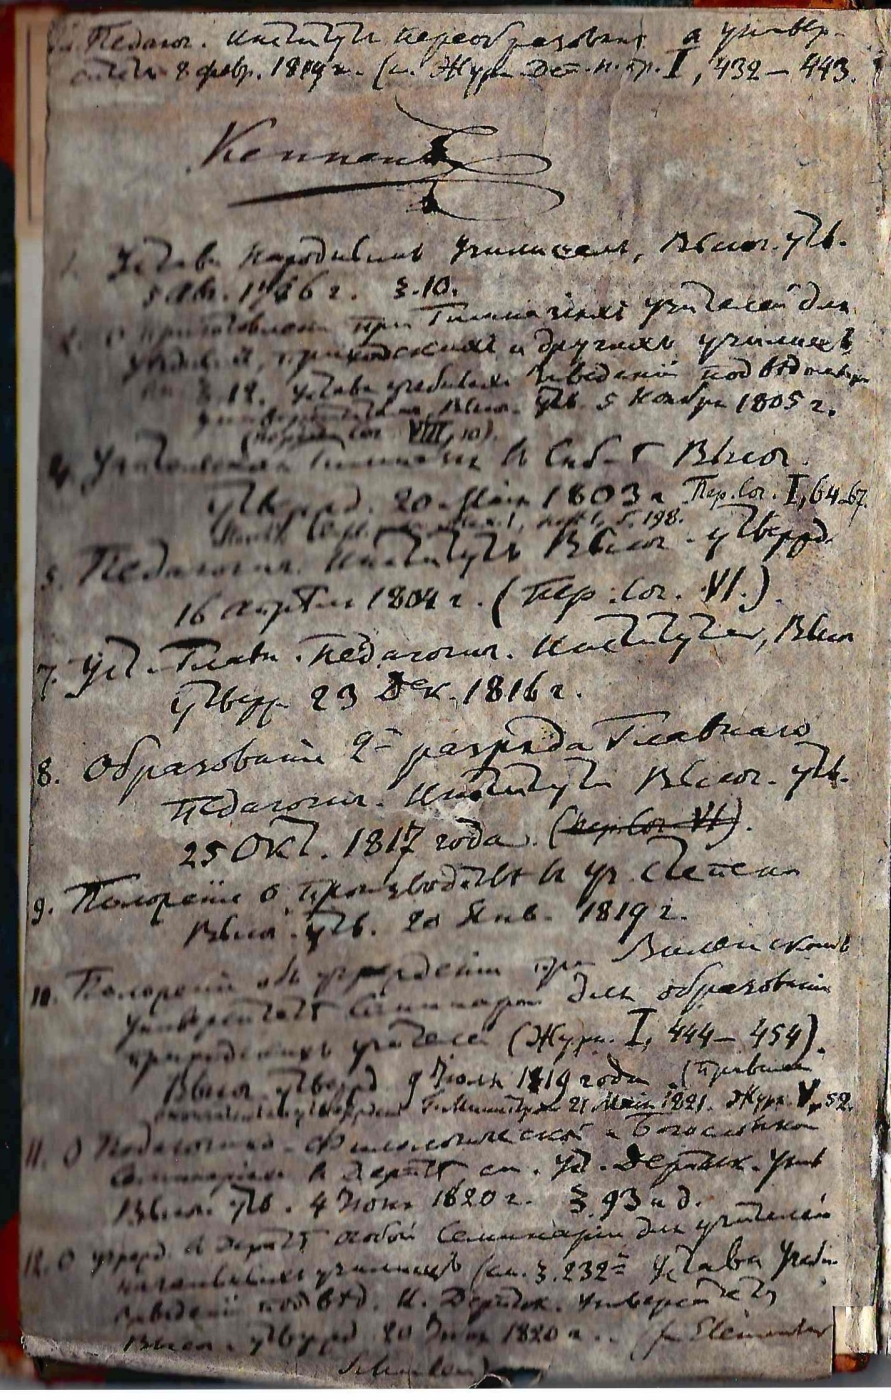 Педагог. Институтъ переобразованъ въ универ-
ситетъ 8 февр. 1819 г. (см. Журн. Деп. н. пр. I, 432 — 443.
Кеппенъ
1. Уставъ Народнымъ Училищамъ, Высоч. утв.
5 Авг. 1786 г. §. 10.
2. О приготовленіи при Гимназіяхъ учителей для
уѣздныхъ, приходскихъ и другихъ училищъ
§. 12. Устава учебныхъ заведеній подвѣдомыхъ
университетамъ, Высоч. утв. 5 Ноября 1805 г.
VIII, 10).
4. Учительская Гимназія въ Спб-гѣ Высоч.
утвержд. 20 Мая 1803 г. Пер. Соч. I, 64-67.
198.
5. Педагогич. Институтъ Высоч. утвержд.
16 Апрѣля 1804 г. (Пер. Соч. VI.)
7. Уст. Главн. Педагогич. Института, Высоч.
утверж. 23 Дек. 1816 г.
8. Образованіе 2го разряда Главнаго
Педагогич. Института Высоч. утв.
25 Окт. 1817 года. (Пер. Соч. VI).
9. Положеніе о производствѣ въ уч. степени
Высоч. утв. 20 Янв. 1819 г.
10. Положеніе объ учрежденіи при Виленскомъ
Университетѣ Семинаріи для образованія
приходскихъ учителей (Журн. I, 444 — 454).
Высоч. утвержд. 9 Іюля 1819 года. (Правила
утвержден. Г. Министромъ 21 Мая 1821. Журн. V, 52.
11. О Педагогико-Филологической и Богословской
Семинаріяхъ въ Дерптѣ см. Уст. Дерптск. Унив.
Высоч. утв. 4 Іюня 1820 г. §. 93 и д.
12. О учрежд. въ Дерптѣ особой Семинаріи для учителей
начальныхъ училищъ (см. §. 232й Устава Учебн.
заведеній подвѣд. И. Дерптск. Университету,
Высоч. утвержд. 20 1820 г. (f. Elementar
Schulen)